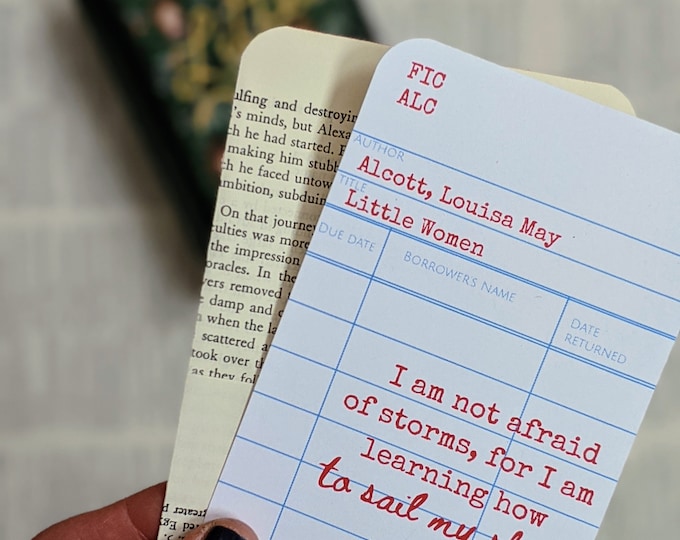 FIC
ALC
AUTHOR
Alcott, Louisa May
TITLE
Little Women
DUE DATE
BORROWER'S NAME
DATE
RETURNED
I am not afraid
of storms, for I am
learning how
to sail my
ulfing and destroying
's minds, but Alexa
ch he had started.
making him stubb
ch he faced untow
ambition, subduin
On that journey
culties was more
the impression
oracles. In the
vers removed
e damp and
n when the la
scattered a
took over t
as they fol
greater